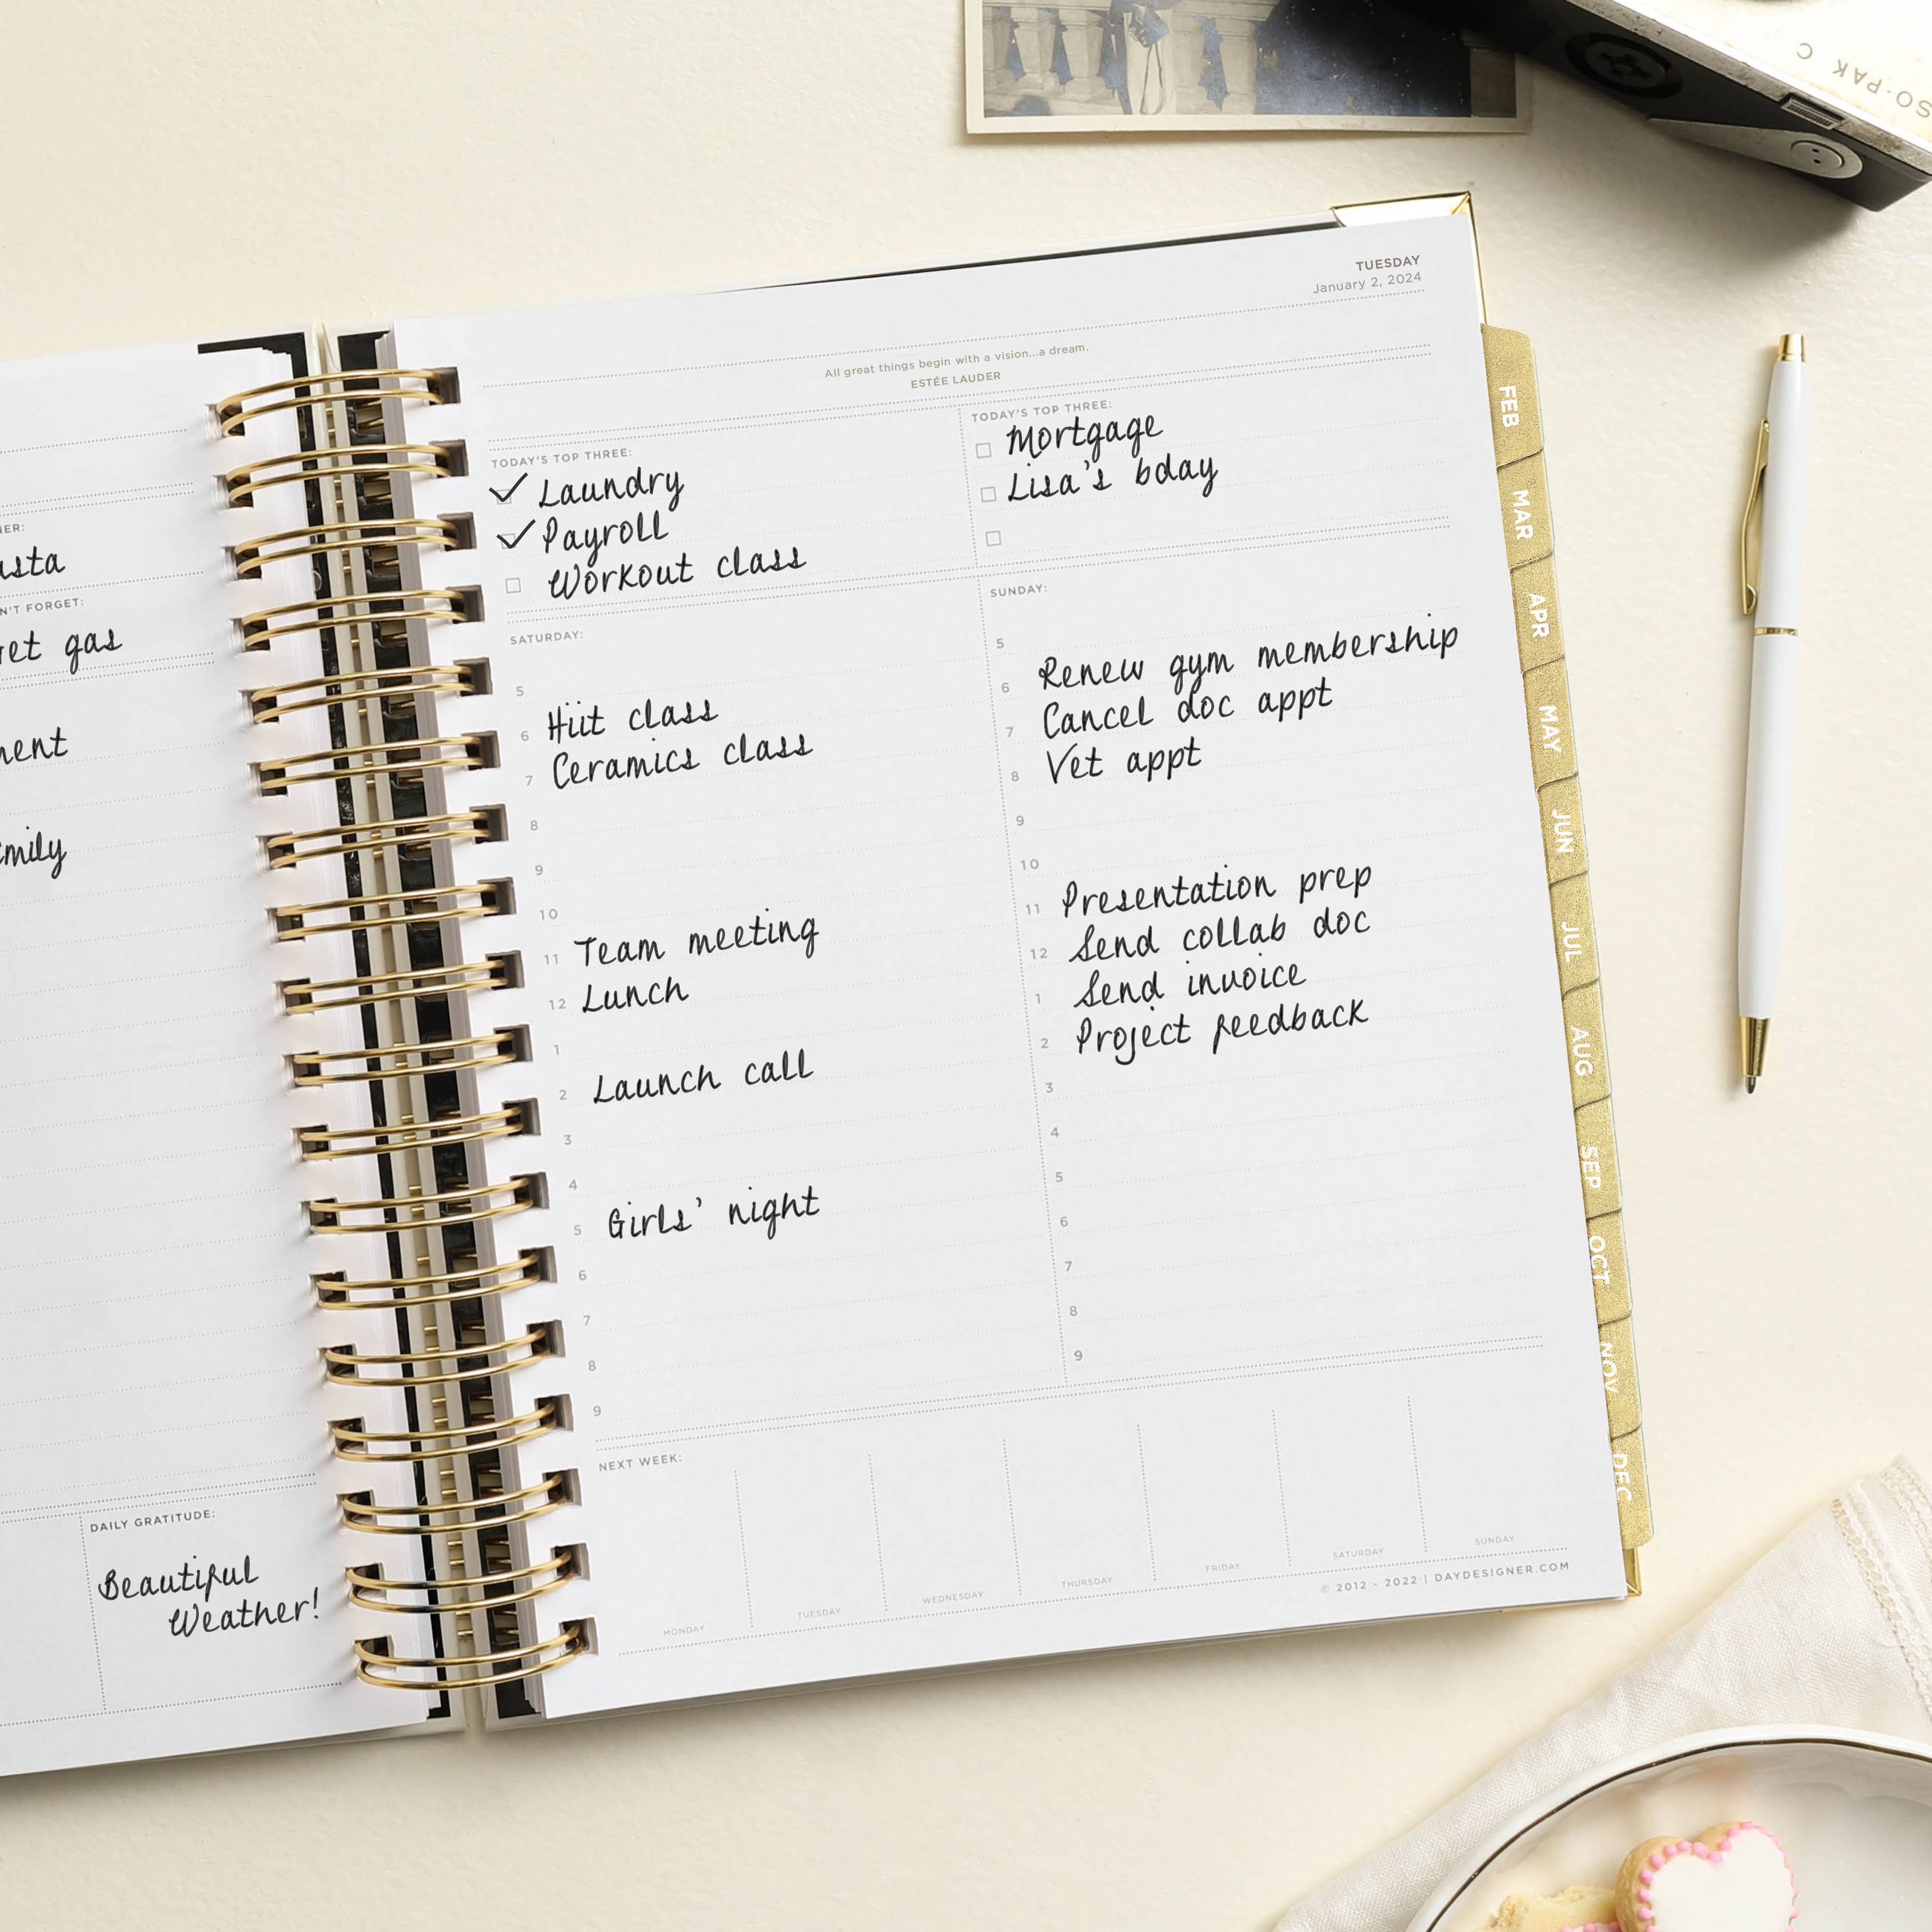 SO-PAK C
TUESDAY
January 2, 2024
All great things begin with a vision...a dream.
ESTÉE LAUDER
TODAY'S TOP THREE:
Laundry
Payroll
Workout class
TODAY'S TOP THREE:
Mortgage
Lisa's bday
SATURDAY:
5
6 Hiit class
7 Ceramics class
8
9
10
11 Team meeting
12 Lunch
1
2 Launch call
3
4
5 Girls' night
6
7
8
9
SUNDAY:
5
6 Renew gym membership
7 Cancel doc appt
8 Vet appt
9
10
11 Presentation prep
12 Send collab doc
1 Send invoice
2 Project feedback
3
4
5
6
7
8
9
NEXT WEEK:
MONDAY
TUESDAY
WEDNESDAY
THURSDAY
FRIDAY
SATURDAY
SUNDAY
© 2012 - 2022 | DAYDESIGNER.COM
FEB
MAR
APR
MAY
JUN
JUL
AUG
SEP
OCT
NOV
DEC
FORGET:
gas
DAILY GRATITUDE:
Beautiful
Weather!